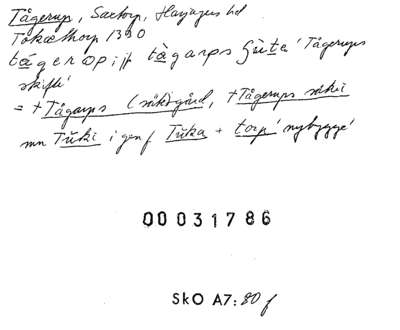 Tågerup, Saxtorp, Harjagers hd
Tokæthorp 1330
tågerøpijt tågarps gåta 'Tågerups
skifte'
= +Tågarps (säteri)gård, +Tågerups säteri
mn Tūki i gen f Tūka + torp 'nybygge'
00031786
SkO A7: 80 f